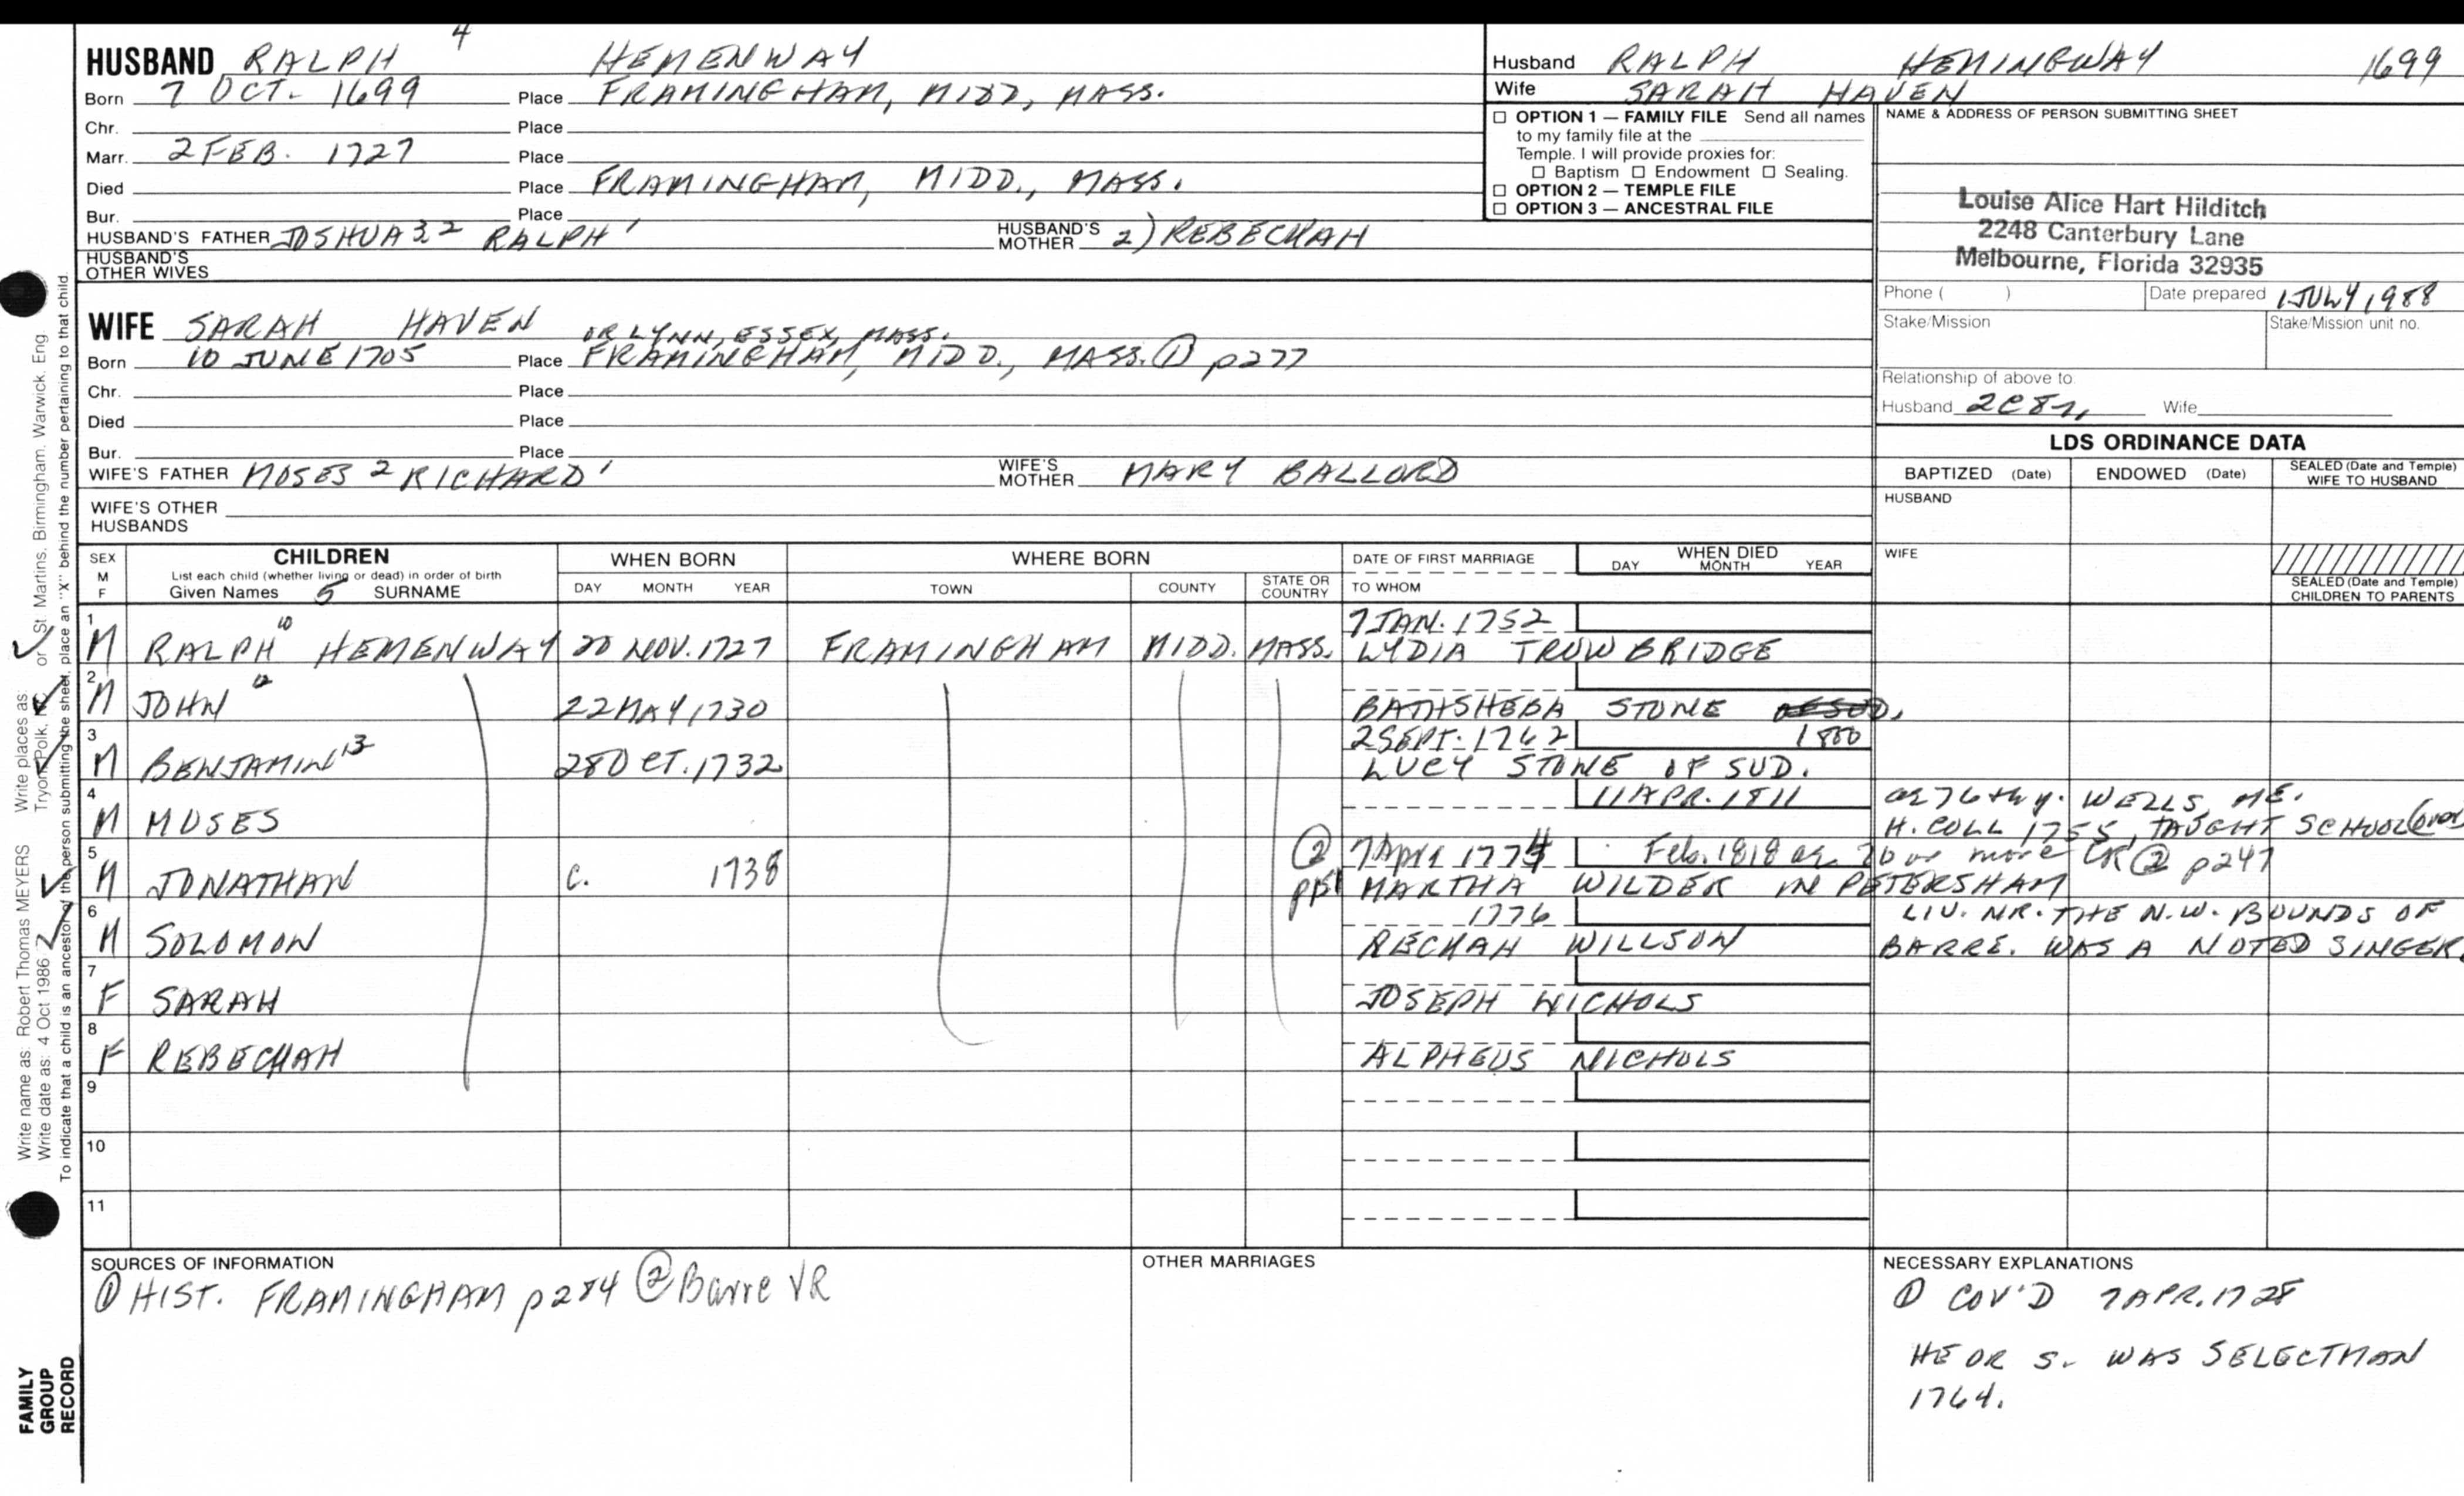 HUSBAND RALPH 4 HEMENWAY
Born 7 OCT. 1699 Place FRAMINGHAM, MIDD, MASS.
Chr. Place
Marr. 2 FEB. 1727 Place
Died Place FRAMINGHAM, MIDD., MASS.
Bur. Place
HUSBAND'S FATHER JOSHUA 3,2 RALPH 1 HUSBAND'S MOTHER 2) REBECKAH
HUSBAND'S OTHER WIVES
Husband RALPH HEMINGWAY 1699
Wife SARAH HAVEN
☐ OPTION 1 — FAMILY FILE Send all names
to my family file at the
Temple. I will provide proxies for:
☐ Baptism ☐ Endowment ☐ Sealing.
☐ OPTION 2 — TEMPLE FILE
☐ OPTION 3 — ANCESTRAL FILE
NAME & ADDRESS OF PERSON SUBMITTING SHEET
Louise Alice Hart Hilditch
2248 Canterbury Lane
Melbourne, Florida 32935
Phone ( ) Date prepared 1 JULY 1988
Stake/Mission Stake/Mission unit no.
Relationship of above to:
Husband 2C8r, Wife
WIFE SARAH HAVEN
OR LYNN, ESSEX, MASS.
Born 10 JUNE 1705 Place FRAMINGHAM, MIDD., MASS. ① p277
Chr. Place
Died Place
Bur. Place
WIFE'S FATHER MOSES 2 RICHARD 1 WIFE'S MOTHER MARY BALLORD
WIFE'S OTHER HUSBANDS
LDS ORDINANCE DATA
BAPTIZED (Date) ENDOWED (Date) SEALED (Date and Temple) WIFE TO HUSBAND
HUSBAND
WIFE
SEALED (Date and Temple) CHILDREN TO PARENTS
SEX M F CHILDREN WHEN BORN WHERE BORN DATE OF FIRST MARRIAGE WHEN DIED
List each child (whether living or dead) in order of birth
Given Names 5 SURNAME DAY MONTH YEAR TOWN COUNTY STATE OR COUNTRY TO WHOM DAY MONTH YEAR
7 JAN. 1752
1 M RALPH 10 HEMENWAY 20 NOV. 1727 FRAMINGHAM MIDD. MASS. LYDIA TROWBRIDGE
2 M JOHN 12 22 MAY 1730 BATHSHEBA STONE
2 SEPT. 1762 1800
3 M BENJAMIN 13 28 OCT. 1732 LUCY STONE OF SUD.
11 APR. 1811 ae 76th y. WELLS, ME.
4 M MOSES H. COLL 1755, TAUGHT SCHOOL (over)
② 7 April 1774 Feb. 1818 ae 76 or more CR② p247
5 M JONATHAN c. 1738 MARTHA WILDER IN PETERSHAM
1776 LIV. NR. THE N.W. BOUNDS OF
6 M SOLOMON RECHAH WILLSON BARRE. WAS A NOTED SINGER.
7 F SARAH JOSEPH NICHOLS
8 F REBECKAH ALPHEUS NICHOLS
9
10
11
SOURCES OF INFORMATION
① HIST. FRAMINGHAM p284 ② Barre VR
OTHER MARRIAGES
NECESSARY EXPLANATIONS
① COV'D 7 APR. 1728
HE OR S. WAS SELECTMAN
1764.
Write name as: Robert Thomas MEYERS Write places as: Tryon, Polk, NC or St. Martins, Birmingham, Warwick, Eng
Write date as: 4 Oct 1986
To indicate that a child is an ancestor of the person submitting the sheet, place an "X" behind the number pertaining to that child.
FAMILY
GROUP
RECORD